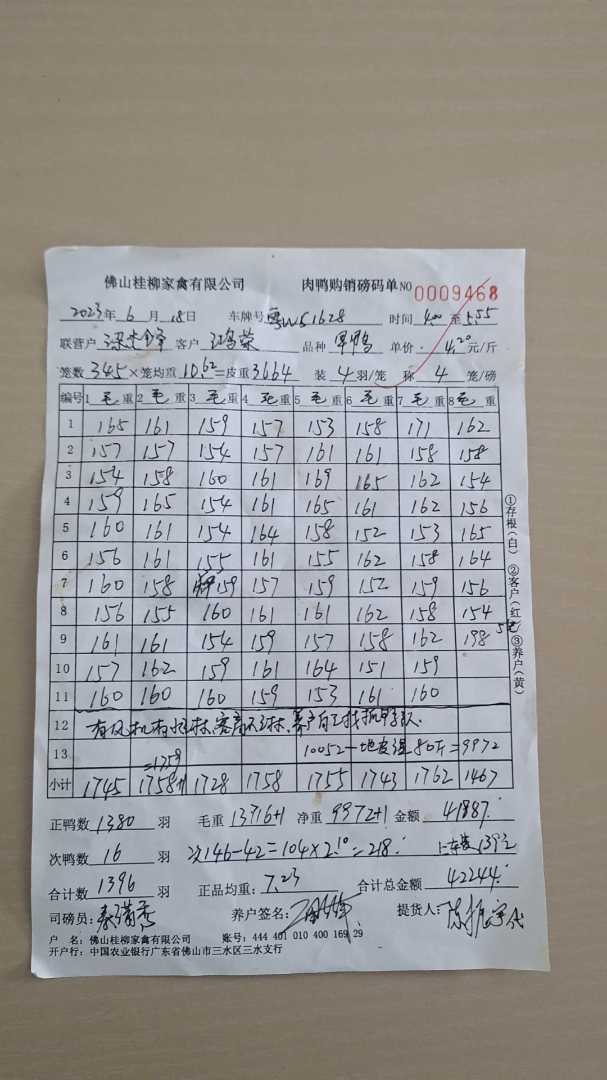 佛山桂柳家禽有限公司 肉鸭购销磅码单 NO 0009468
2023年 6 月 18 日 车牌号 粤W51628 时间 4:00 至 5:55
联营户 客户 鸿荣 品种 单价 4.20 元/斤
笼数 345 ×笼均重 10.62 =皮重 3664 装 4 羽/笼 称 4 笼/磅
编号 1 毛 重 2 毛 重 3 毛 重 4 毛 重 5 毛 重 6 毛 重 7 毛 重 8 毛 重
1 165 161 159 157 153 158 171 162
2 157 157 154 157 161 161 158 158
3 154 158 160 161 169 165 162 154
4 159 165 154 161 165 161 162 156
5 160 161 154 164 158 152 153 165
6 156 161 155 161 155 162 158 164
7 160 158 159 157 159 152 159 156
8 156 155 160 161 161 162 158 154
9 161 161 154 159 157 158 162 198 5笼
10 157 162 159 161 164 151 159
11 160 160 160 159 153 161 160
12 有风机有水淋,客户不淋,养户自工找抓鸭队.
13 =1759 10052-地皮湿80斤=9972
小计 1745 1758+1 1728 1758 1755 1743 1762 1467
正鸭数 1380 羽 毛重 13716+1 净重 9972+1 金额 41887.
次鸭数 16 羽 次146-42=104×2.10=218. 上车装1392
合计数 1396 羽 正品均重: 7.23 合计总金额 42244.
司磅员: 养户签名: 提货人: 代
户 名: 佛山桂柳家禽有限公司 账号: 444 401 010 400 169 29
开户行: 中国农业银行广东省佛山市三水区三水支行
①存根(白) ②客户(红) ③养户(黄)